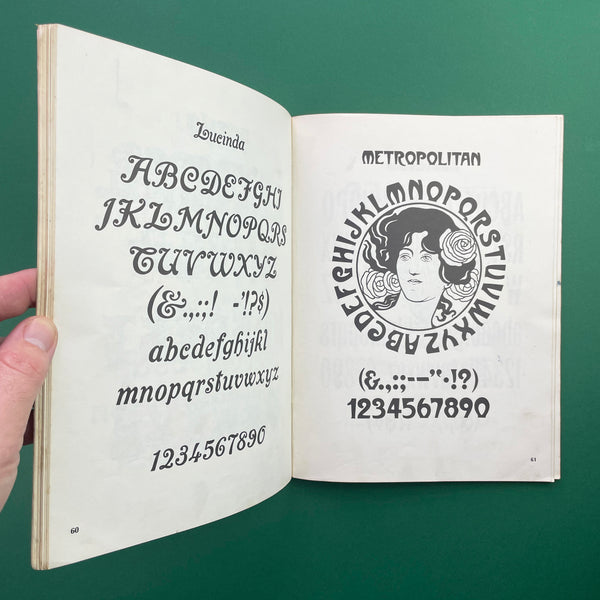 Lucinda
ABCDEFGHI
JKLMNOPQRS
TUVWXYZ
(&.,:;! -'!?$)
abcdefghijkl
mnopqrstuvwxyz
1234567890
60
METROPOLITAN
ABCDEFGHIJKLMNOPQRSTUVWXYZ
(&.,:;--“·!?)
1234567890
61